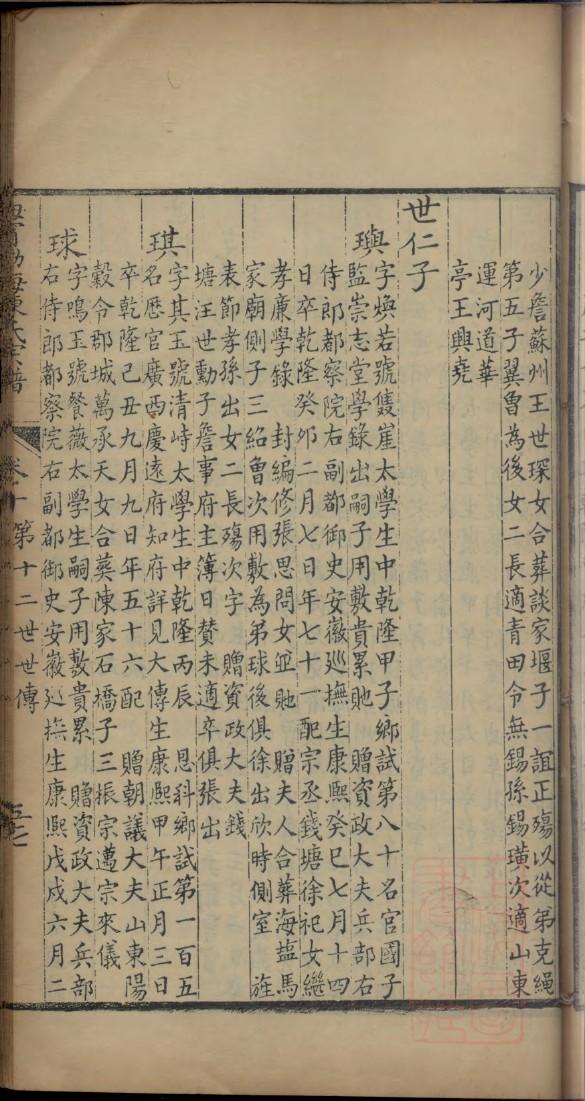 少詹蘇州王世琛女合葬談家堰子一誼正殤以從弟克繩
第五子翼曾為後女二長適青田令無錫孫錫璜次適山東
運河道華
亭王興堯
世仁子
璵字煥若號隻崖太學生中乾隆甲子鄉試第八十名官國子
監崇志堂學錄出嗣子用敷貴累貤 贈資政大夫兵部右
侍郎都察院右副都御史安徽巡撫生康熙癸巳七月十四
日卒乾隆癸卯二月七日年七十一配宗丞錢塘徐祀女繼
孝廉學錄 封編修張思問女並貤 贈夫人合葬海鹽馬
家廟側子三紹曾次用敷為弟球後俱徐出欣時側室 旌
表節孝孫出女二長殤次字 贈資政大夫錢
塘汪世勳子詹事府主簿日贊未適卒俱張出
琪字其玉號清峙太學生中乾隆丙辰 恩科鄉試第一百五
名歷官廣西慶遠府知府詳見大傳生康熙甲午正月三日
卒乾隆己丑九月九日年五十六配 贈朝議大夫山東陽
穀令郡城萬承天女合葬陳家石橋子三振宗邁宗來儀
球字鳴玉號餐薇太學生嗣子用敷貴累 贈資政大夫兵部
右侍郎都察院右副都御史安徽巡撫生康熙戊戌六月二
海陳氏宗譜 卷十 第十二世世傳